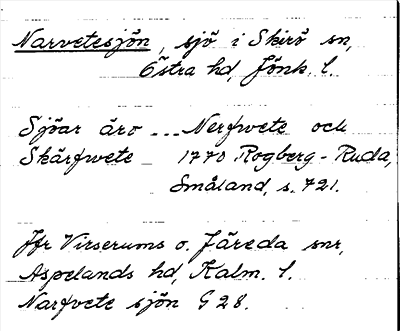 Narvetesjön, sjö i Skirö sn,
Östra hd, Jönk. l.
Sjöar äro --- Nerfwete och
Skärfwete _ 1770 Rogberg - Ruda,
Småland, s. 721.
Jfr Virserums o. Järeda snr,
Aspelands hd, Kalm. l.
Narfvete sjön G 28.